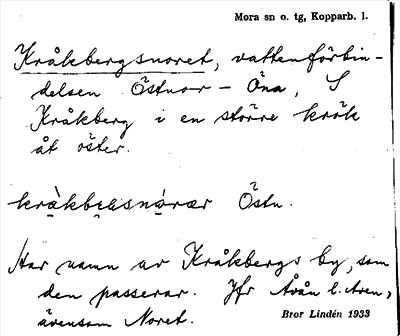 Mora sn o. tg, Kopparb. l.
Kråkbergsnoret, vattenförbin-
delsen Östnor - Öna, S
Kråkberg i en större krök
åt öster.
Östn.
Har namn av Kråkbergs by, som
den passerar. Jfr Åvån l. Aven,
ävensom Noret.
Bror Lindén 1933